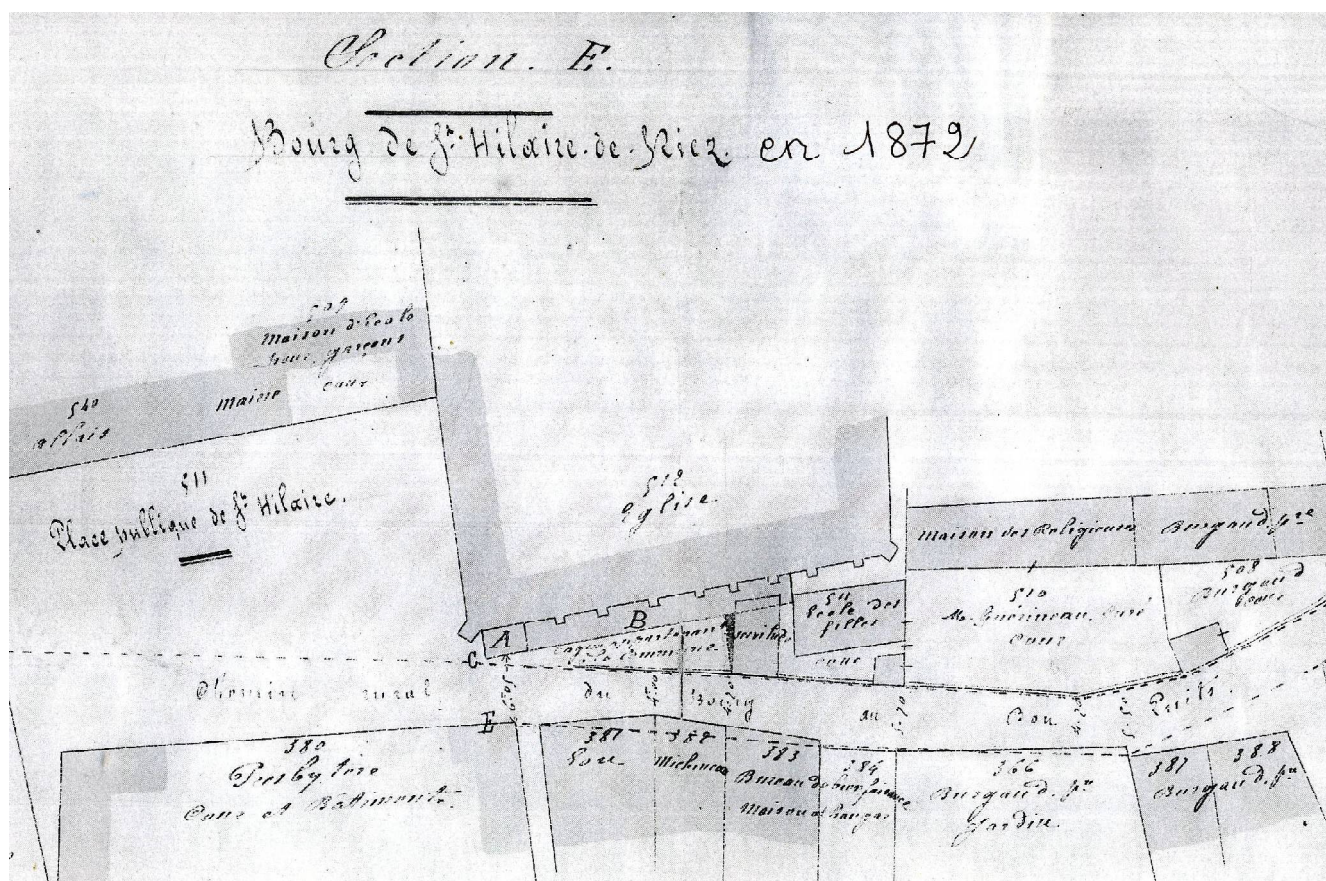 Section. E.
Bourg de St. Hilaire-de-Riez. en 1872
509
Maison d'école
pour garçons
cour
Mairie
540
511
Place publique de St Hilaire.
512
Eglise.
A
B
C
E
appartenant
Commune
servitude
511
Ecole des
filles
cour
Maison des Religieuses
Burgaud pre
510
Me Guérineau Curé
Cour
508
Burgaud
Chemin rural du Bourg au Bon Puits.
380
Presbytère
Cour et Bâtiments.
381
382
383
Bureau de bienfaisance
Maison et hangar
384
366
Burgaud. pre
Jardin.
387
388
Burgaud. pre